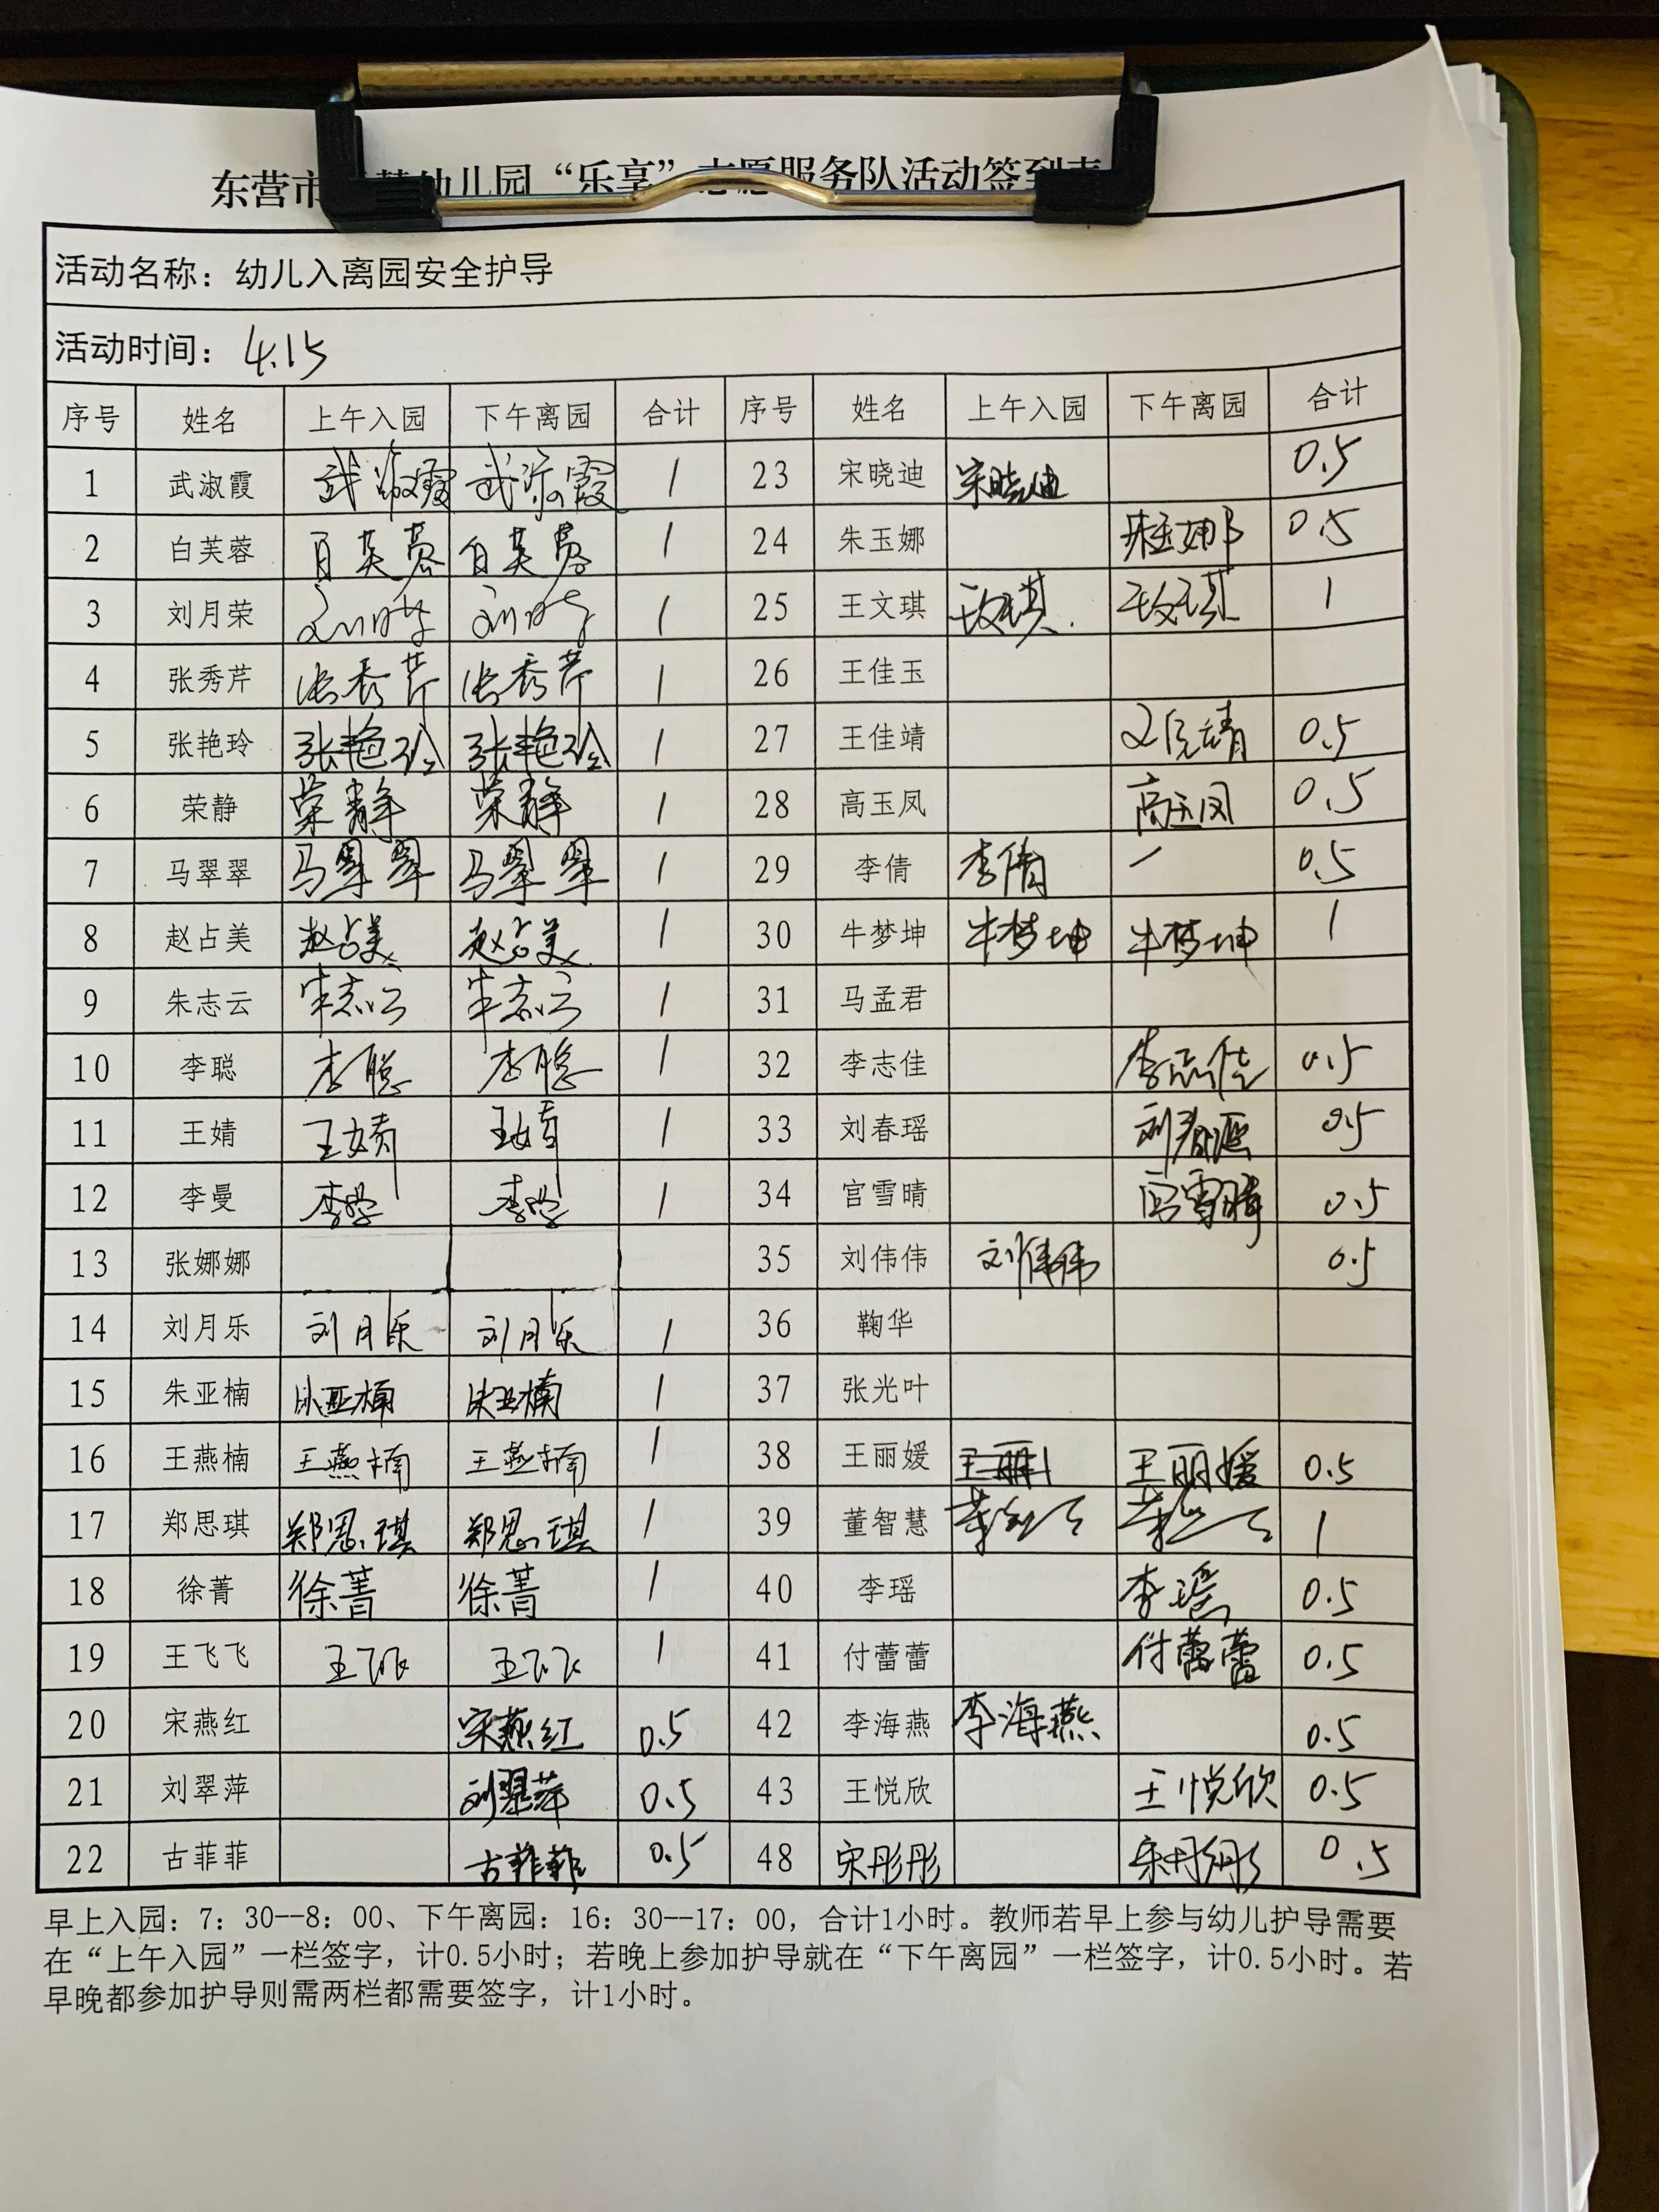 东营市 幼儿园“乐享”志愿服务队活动签到表
活动名称：幼儿入离园安全护导
活动时间：4.15
序号 姓名 上午入园 下午离园 合计 序号 姓名 上午入园 下午离园 合计
1 武淑霞 武淑霞 武淑霞 1 23 宋晓迪 宋晓迪 0.5
2 白芙蓉 白芙蓉 白芙蓉 1 24 朱玉娜 朱玉娜 0.5
3 刘月荣 刘月荣 刘月荣 1 25 王文琪 王文琪 王文琪 1
4 张秀芹 张秀芹 张秀芹 1 26 王佳玉
5 张艳玲 张艳玲 张艳玲 1 27 王佳靖 王佳靖 0.5
6 荣静 荣静 荣静 1 28 高玉凤 高玉凤 0.5
7 马翠翠 马翠翠 马翠翠 1 29 李倩 李倩 / 0.5
8 赵占美 赵占美 赵占美 1 30 牛梦坤 牛梦坤 牛梦坤 1
9 朱志云 朱志云 朱志云 1 31 马孟君
10 李聪 李聪 李聪 1 32 李志佳 李志佳 0.5
11 王婧 王婧 王婧 1 33 刘春瑶 刘春瑶 0.5
12 李曼 李曼 李曼 1 34 官雪晴 官雪晴 0.5
13 张娜娜 35 刘伟伟 刘伟伟 0.5
14 刘月乐 刘月乐 刘月乐 1 36 鞠华
15 朱亚楠 朱亚楠 朱亚楠 1 37 张光叶
16 王燕楠 王燕楠 王燕楠 1 38 王丽媛 王丽媛 0.5
17 郑思琪 郑思琪 郑思琪 1 39 董智慧 董智慧 董智慧 1
18 徐菁 徐菁 徐菁 1 40 李瑶 李瑶 0.5
19 王飞飞 王飞飞 王飞飞 1 41 付蕾蕾 付蕾蕾 0.5
20 宋燕红 宋燕红 0.5 42 李海燕 李海燕 0.5
21 刘翠萍 刘翠萍 0.5 43 王悦欣 王悦欣 0.5
22 古菲菲 古菲菲 0.5 48 宋彤彤 宋彤彤 0.5
早上入园：7：30--8：00、下午离园：16：30--17：00，合计1小时。教师若早上参与幼儿护导需要
在“上午入园”一栏签字，计0.5小时；若晚上参加护导就在“下午离园”一栏签字，计0.5小时。若
早晚都参加护导则需两栏都需要签字，计1小时。